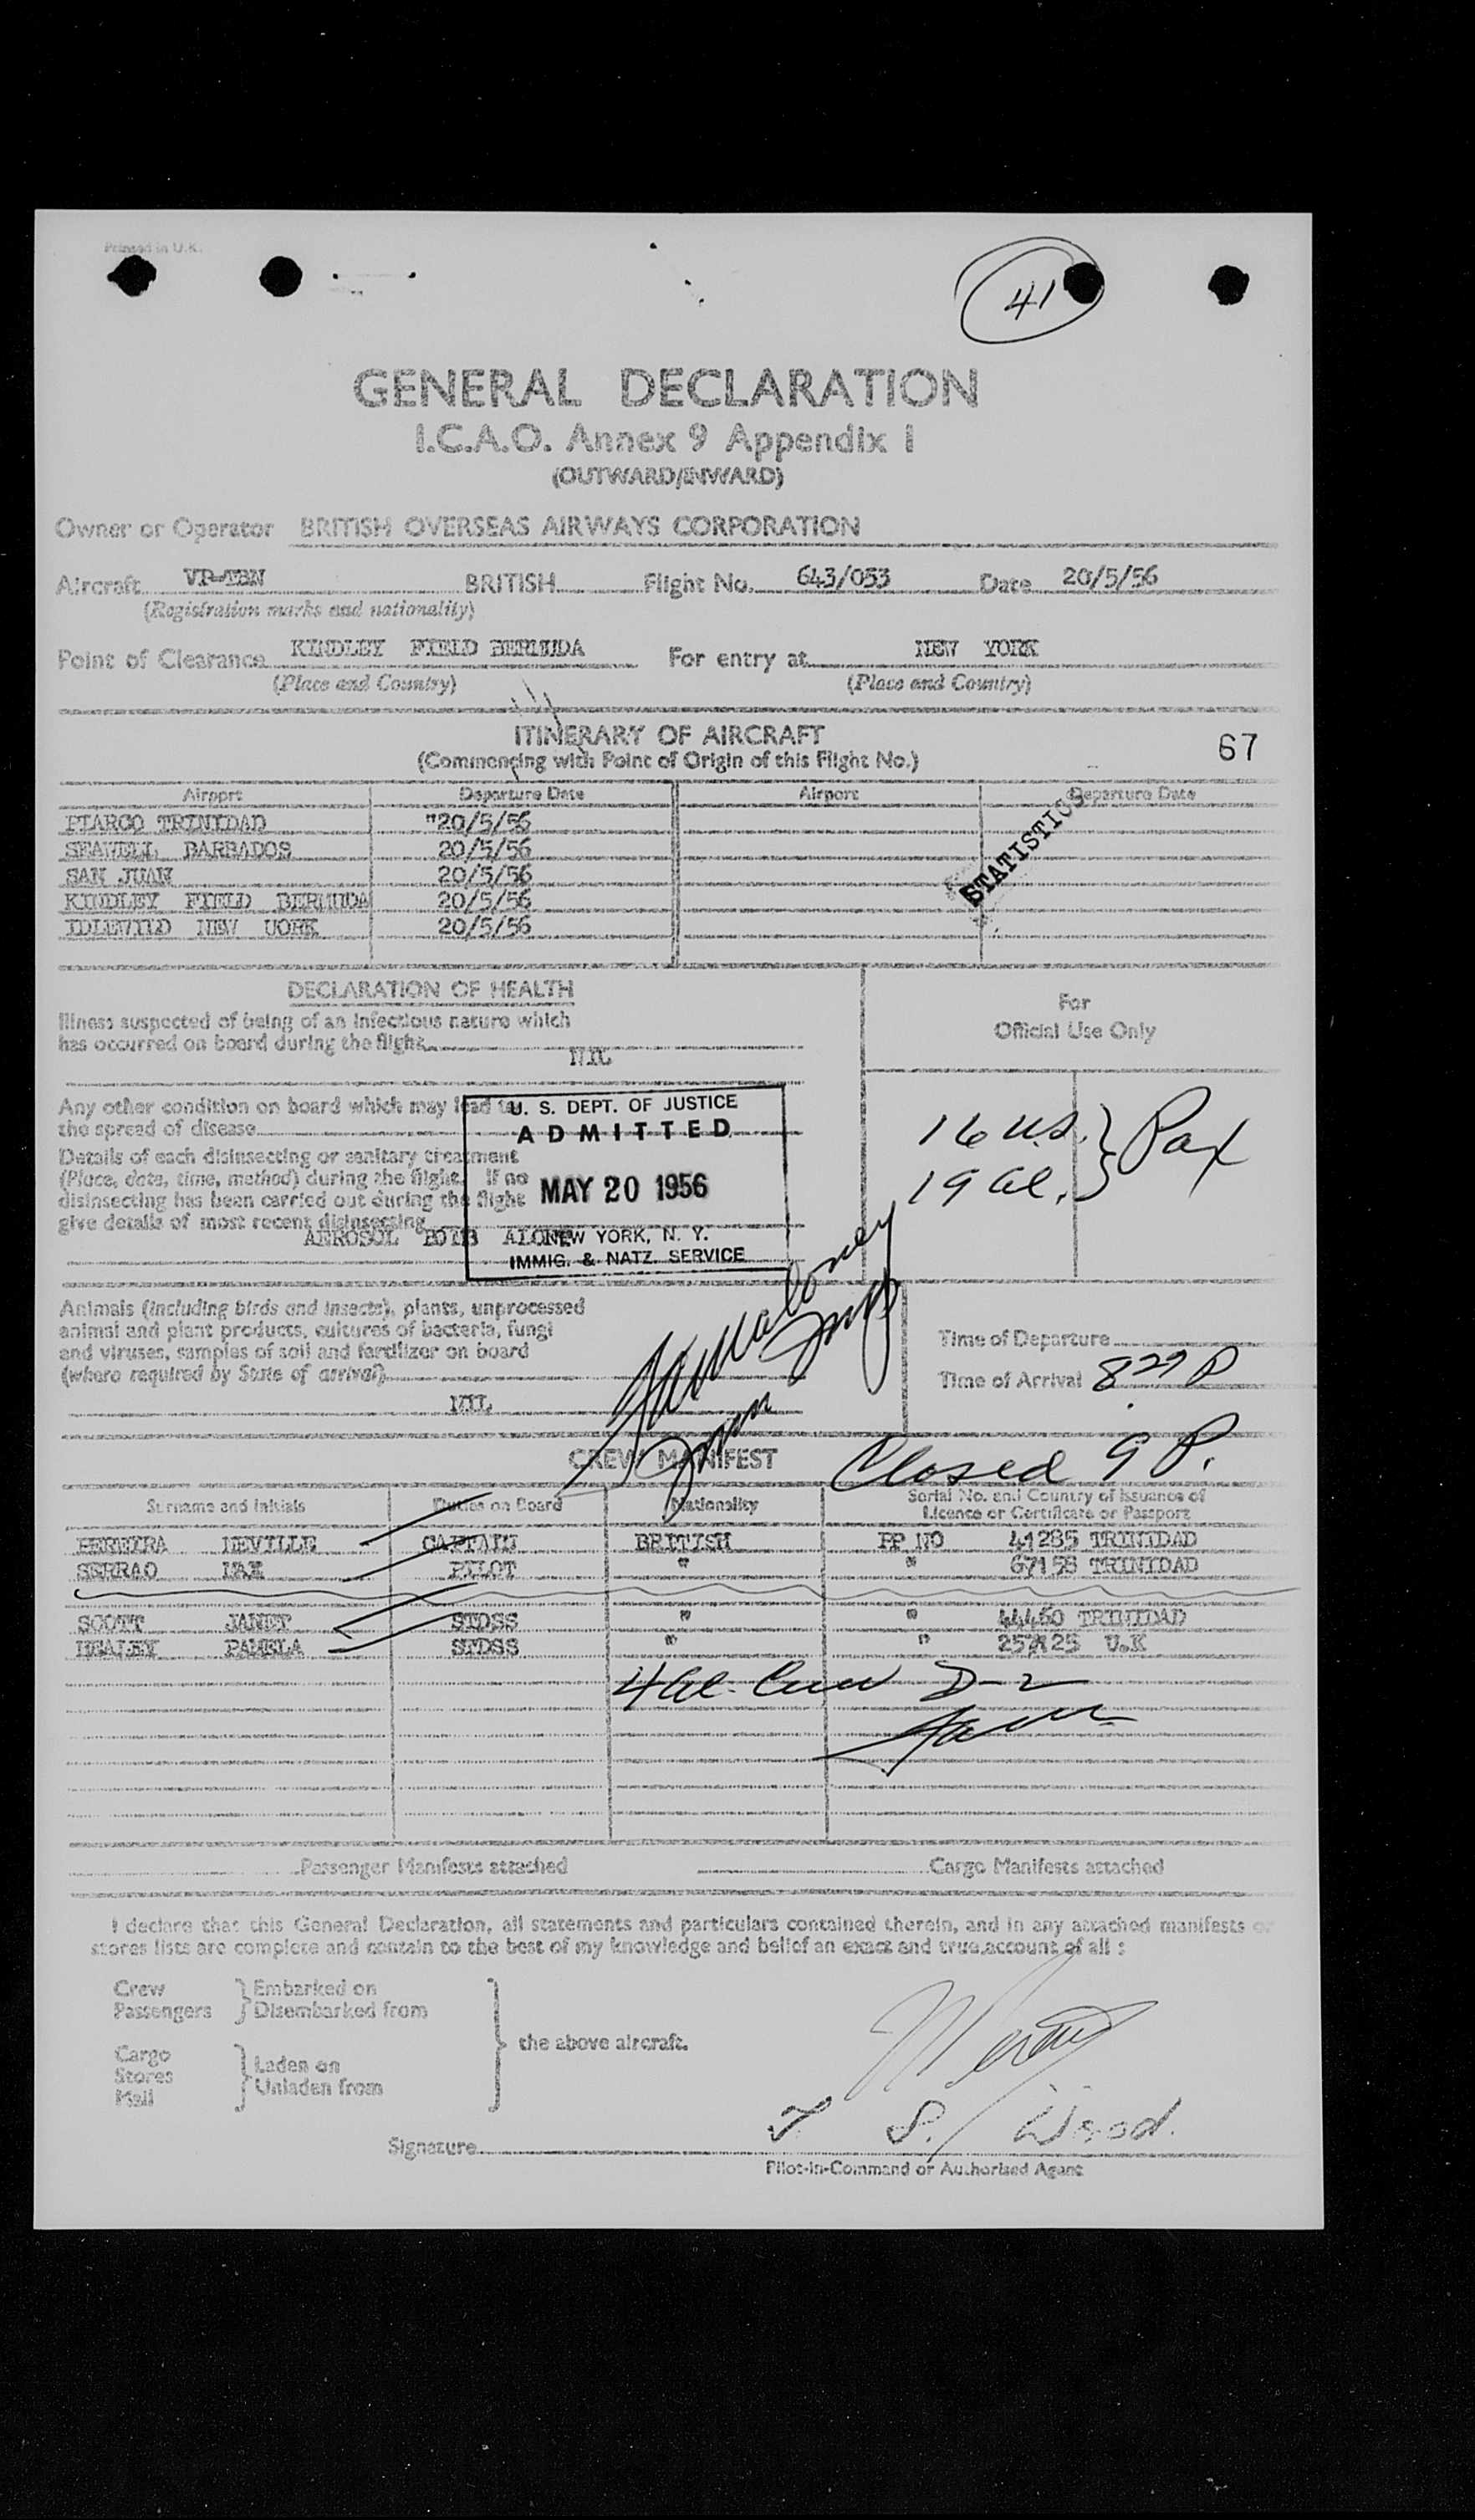 Printed in U.K.
41
GENERAL DECLARATION
I.C.A.O. Annex 9 Appendix I
(OUTWARD/INWARD)
Owner or Operator BRITISH OVERSEAS AIRWAYS CORPORATION
Aircraft VP-TBN BRITISH Flight No. 643/053 Date 20/5/56
(Registration marks and nationality)
Point of Clearance KINDLEY FIELD BERMUDA For entry at NEW YORK
(Place and Country) (Place and Country)
ITINERARY OF AIRCRAFT
67
(Commencing with Point of Origin of this Flight No.)
Airport Departure Date Airport Departure Date
PIARCO TRINIDAD "20/5/56
SEAWELL BARBADOS 20/5/56
SAN JUAN 20/5/56
KINDLEY FIELD BERMUDA 20/5/56
IDLEWILD NEW YORK 20/5/56
STATISTICS
DECLARATION OF HEALTH
For
Official Use Only
Illness suspected of being of an infectious nature which
has occurred on board during the flight
NIL
Any other condition on board which may lead to
the spread of disease
Details of each disinsecting or sanitary treatment
(Place, date, time, method) during the flight. If no
disinsecting has been carried out during the flight
give details of most recent disinsecting
AEROSOL BOMB
U. S. DEPT. OF JUSTICE
ADMITTED
MAY 20 1956
NEW YORK, N. Y.
IMMIG. & NATZ. SERVICE
16 U.S. } Pax
19 al.
Animals (including birds and insects), plants, unprocessed
animal and plant products, cultures of bacteria, fungi
and viruses, samples of soil and fertilizer on board
(where required by State of arrival)
NIL
Time of Departure
Time of Arrival 8 29 P
Closed 9 P.
CREW MANIFEST
Surname and Initials Duties on Board Nationality Serial No. and Country of Issuance of
Licence or Certificate or Passport
PEREIRA NEVILLE CAPTAIN BRITISH PP NO 41285 TRINIDAD
SERRAO MAX PILOT " " 67158 TRINIDAD
SCOTT JANET STDSS " " 44460 TRINIDAD
HEALEY PAMELA STDSS " " U.K
4 al. Crew D-2
Passenger Manifests attached Cargo Manifests attached
I declare that this General Declaration, all statements and particulars contained therein, and in any attached manifests or
stores lists are complete and contain to the best of my knowledge and belief an exact and true account of all :
Crew } Embarked on
Passengers } Disembarked from
the above aircraft.
Cargo
Stores } Laden on
Mail } Unladen from
S. Wood.
Signature
Pilot-in-Command or Authorised Agent